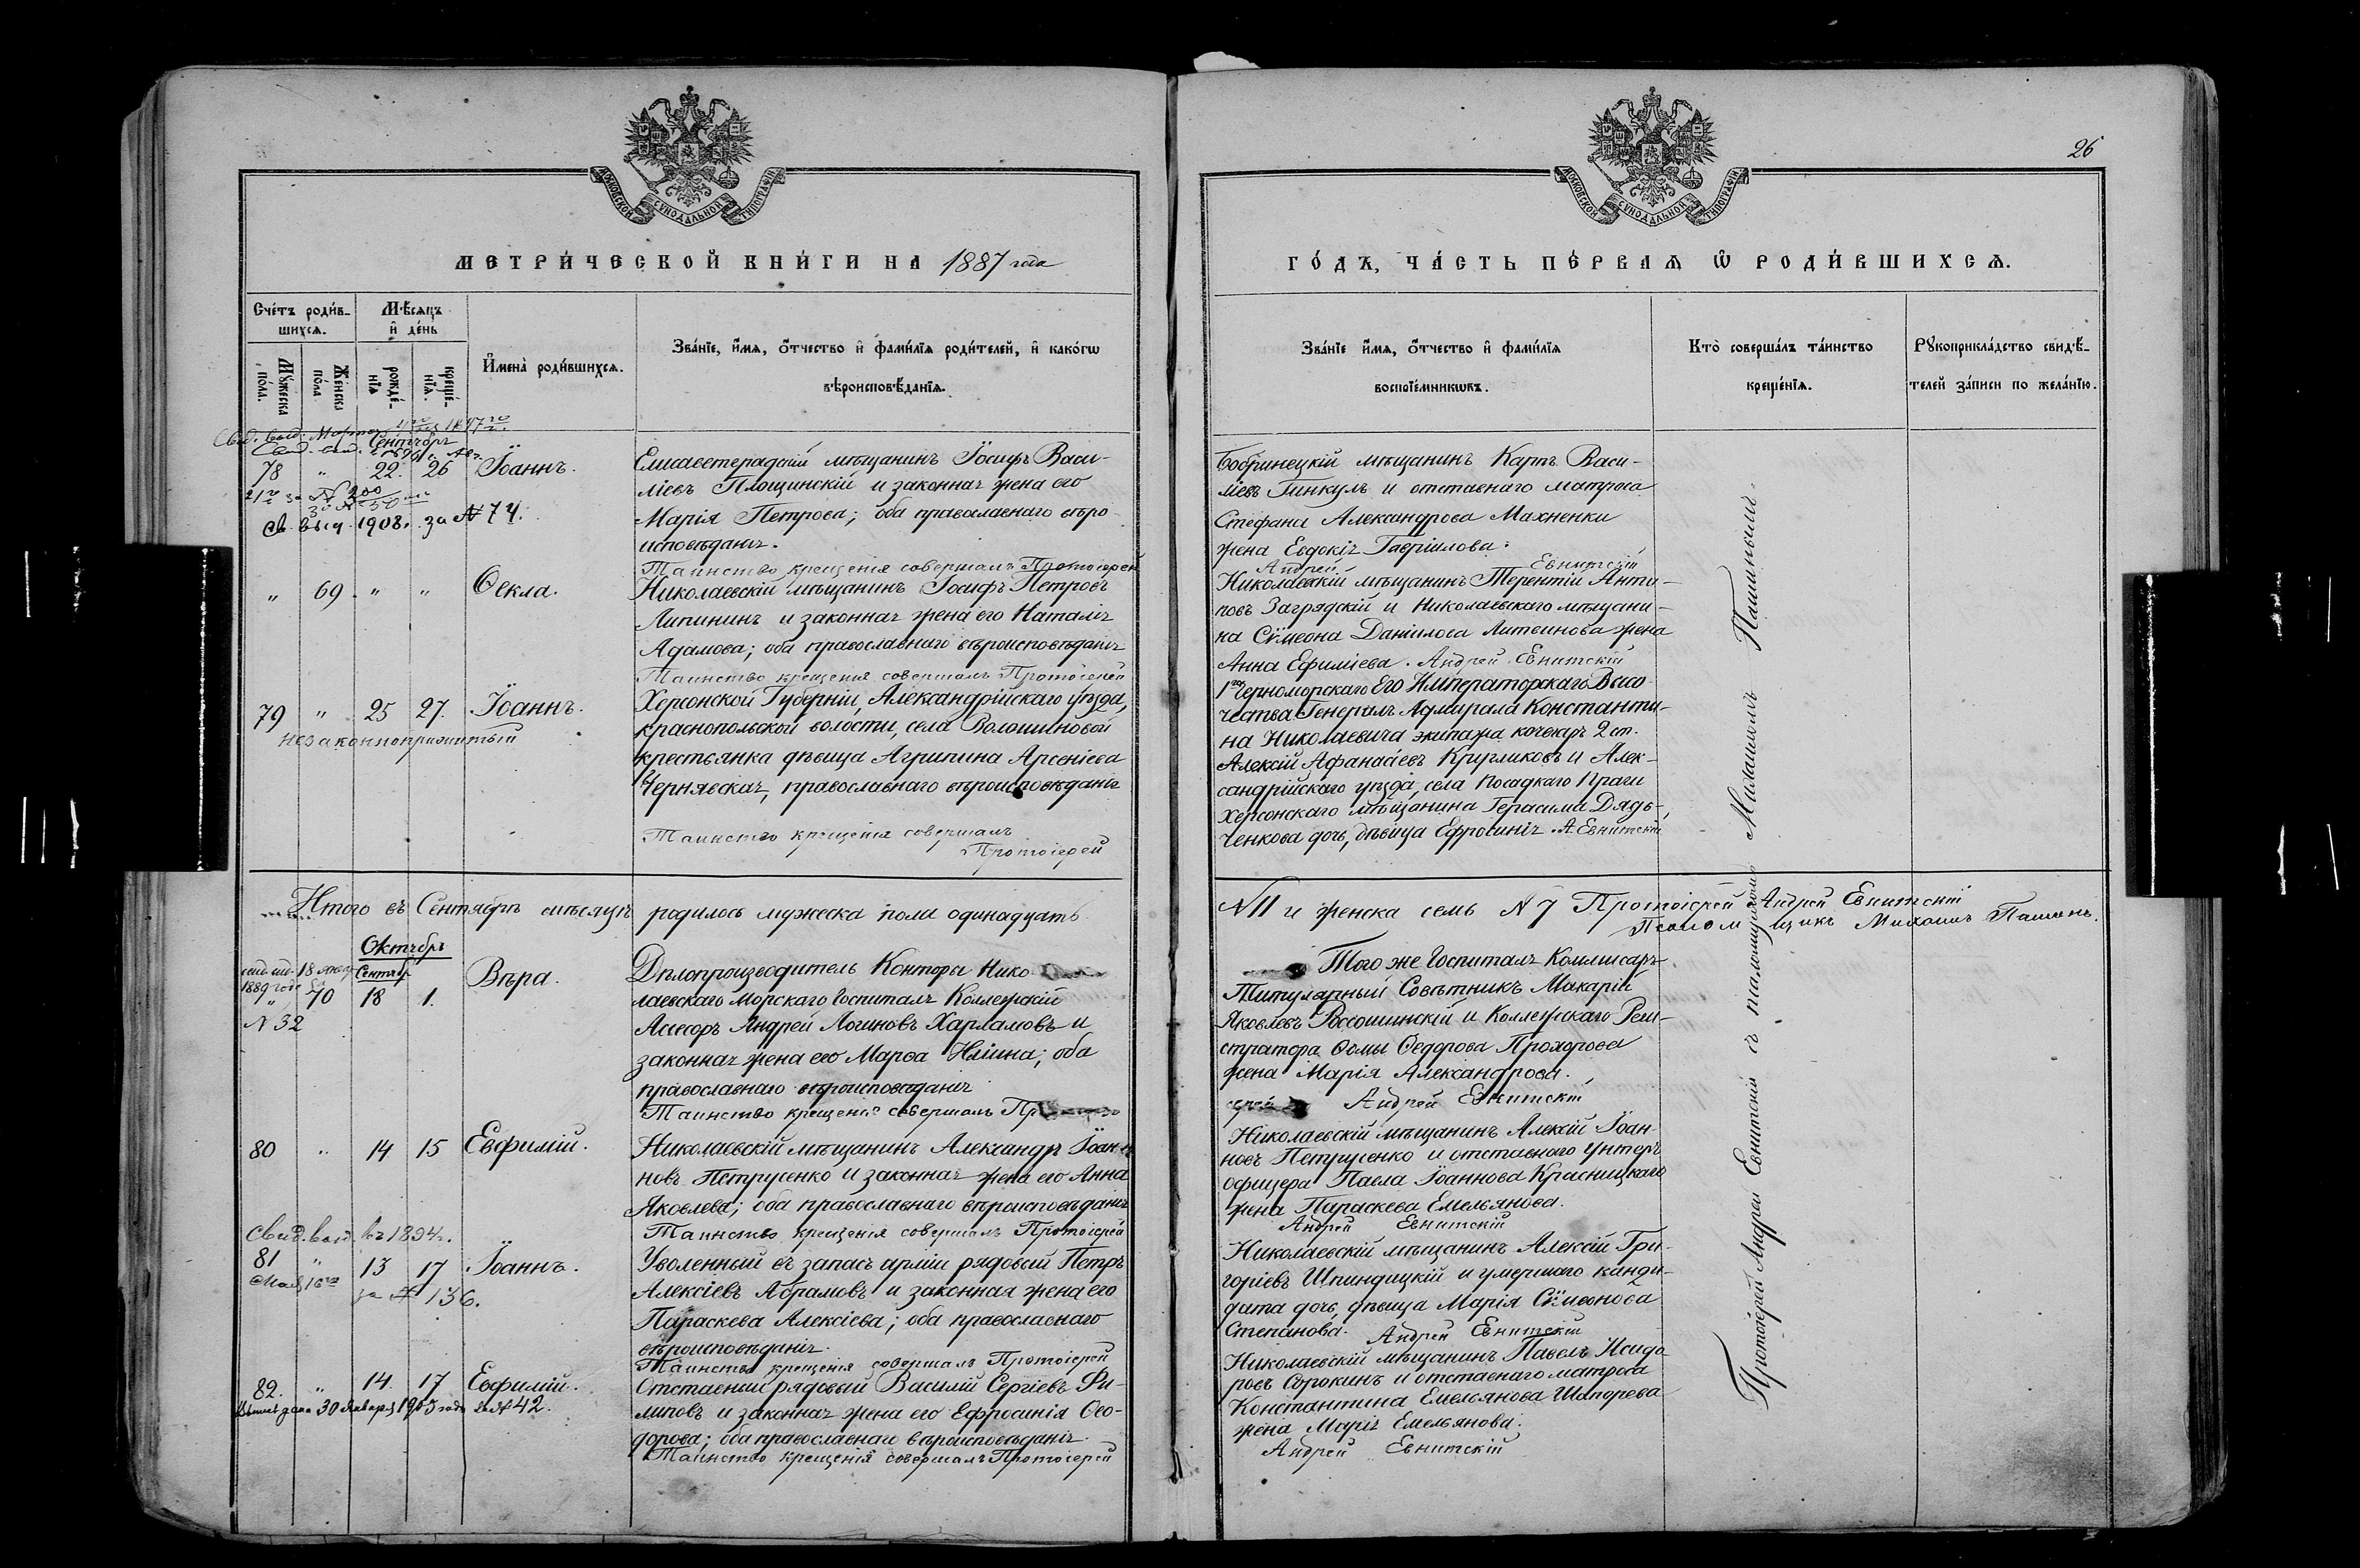 МОСКОВСКОЙ СУНОДАЛЬНОЙ ТИПОГРАФІИ
МЕТРИ́ЧЕСКОЙ КНИ́ГИ НА 1887 года
Сче́тъ роди́в-
шихсѧ.
Мѣ́сѧцъ
и҆ де́нь
Мꙋ́жеска
по́ла.
Же́нска
по́ла
рожде́-
нїѧ
креще́-
нїѧ.
И҆мена̀ роди́вшихсѧ.
Зва́нїе, и҆́мѧ, ѻ҆́тчество и҆ фами́лїѧ роди́телей, и҆ како́гѡ
вѣроисповѣ́данїѧ.
Сентябрь
78 " 22. 26 Іоаннъ.
за № 200
св. выд. 1908. за № 74.
Елисаветградскій мѣщанинъ Іосифъ Васи-
ліевъ Площинскій и законная жена его
Марія Петрова; оба православнаго вѣро-
исповѣданія.
Таинство крещенія совершалъ Протоіерей
" 69 " " Ѳекла.
Николаевскій мѣщанинъ Іосифъ Петровъ
Липининъ и законная жена его Наталія
Адамова; оба православнаго вѣроисповѣданія
Таинство крещенія совершалъ Протоіерей
79 " 25 27. Іоаннъ.
незаконноприжитый
Херсонской Губерніи, Александрійскаго уѣзда,
краснопольской волости, села Волошиновой
крестьянка дѣвица Агрипина Арсеніева
Чернявская, православнаго вѣроисповѣданія
Таинство крещенія совершалъ
Протоіерей
Итого въ Сентябрѣ мѣсяцѣ родилось мужеска пола одинадцать
Октябрь
Сентяб.
1889 года
" 70 18 1. Вѣра.
№ 32
Дѣлопроизводитель Конторы Нико-
лаевскаго Морскаго Госпиталя Коллежскій
Асесоръ Андрей Логиновъ Харламовъ и
законная жена его Марѳа Иліина; оба
православнаго вѣроисповѣданія
Таинство крещенія совершалъ
80 " 14 15 Евфимій.
Николаевскій мѣщанинъ Александръ Іоан-
новъ Петрусенко и законная жена его Анна
Яковлева; оба православнаго вѣроисповѣданія
Таинство крещенія совершалъ Протоіерей
Свид. выд. въ 1894 г.
81 " 13 17 Іоаннъ.
Мая 16го
за № 136.
Уволенный въ запасъ арміи рядовой Петръ
Алексіевъ Абрамовъ и законная жена его
Параскева Алексіева; оба православнаго
вѣроисповѣданія.
Таинство крещенія совершалъ Протоіерей
82. " 14. 17 Евфимій.
30 Января 1905 года за № 42.
Отставный рядовый Василій Сергіевъ Фи-
липовъ и законная жена его Ефросинія Ѳео-
дорова; оба православнаго вѣроисповѣданія.
Таинство крещенія совершалъ Протоіерей
26
МОСКОВСКОЙ СУНОДАЛЬНОЙ ТИПОГРАФІИ
ГО́ДЪ, ЧА́СТЬ ПЕ́РВАѦ Ѽ РОДИ́ВШИХСѦ.
Зва́нїе и҆́мѧ, ѻ҆́тчество и҆ фами́лїѧ
воспрїе́мникѡвъ.
Кто̀ соверша́лъ та́инство
креще́нїѧ.
Рꙋкоприкла́дство свидѣ́-
телей за́писи по жела́нїю.
Бобринецкій мѣщанинъ Карпъ Васи-
ліевъ Гинкулъ и отставнаго матроса
Стефана Александрова Махненки
жена Евдокія Гавріилова.
Андрей Евнитскій
Николаевскій мѣщанинъ Терентій Анти-
повъ Загрядскій и Николаевскаго мѣщани-
на Сѵмеона Даніилова Литвинова жена
Анна Ефиміева. Андрей Евнитскій
1го Черноморскаго Его Императорскаго Высо-
чества Генералъ Адмирала Константи-
на Николаевича экипажа кочегаръ 2 ст.
Алексій Афанасіевъ Кругликовъ и Алек-
сандрійскаго уѣзда, села Посадкаго Праги
Херсонскаго мѣщанина Герасима Дядь-
ченкова дочь, дѣвица Ефросинія. А. Евнитскій
№ 11 и женска семь № 7 Протоіерей Андрей Евнитскій
Псаломщикъ Михаилъ Пашинъ.
Того же Госпиталя Коммисаръ
Титулярный Совѣтникъ Макарій
Яковлевъ Россошинскій и Коллежскаго Реги-
стратора Ѳомы Ѳедорова Прохорова
жена Марія Александрова.
Андрей Евнитскій
Николаевскій мѣщанинъ Алексій Іоан-
новъ Петрусенко и отставнаго Унтеръ
офицера Павла Іоаннова Красницкаго
жена Параскева Емельянова.
Андрей Евнитскій
Николаевскій мѣщанинъ Алексій Гри-
горіевъ Шпиндицкій и умершаго канди-
дата дочь, дѣвица Марія Сѵмеонова
Степанова. Андрей Евнитскій
Николаевскій мѣщанинъ Павелъ Исидо-
ровъ Сорокинъ и отставнаго матроса
Константина Емельянова Шапорева
жена Марія Емельянова.
Андрей Евнитскій
Протоіерей Андрей Евнитскій съ псаломщикомъ Михаиломъ Пашинымъ.